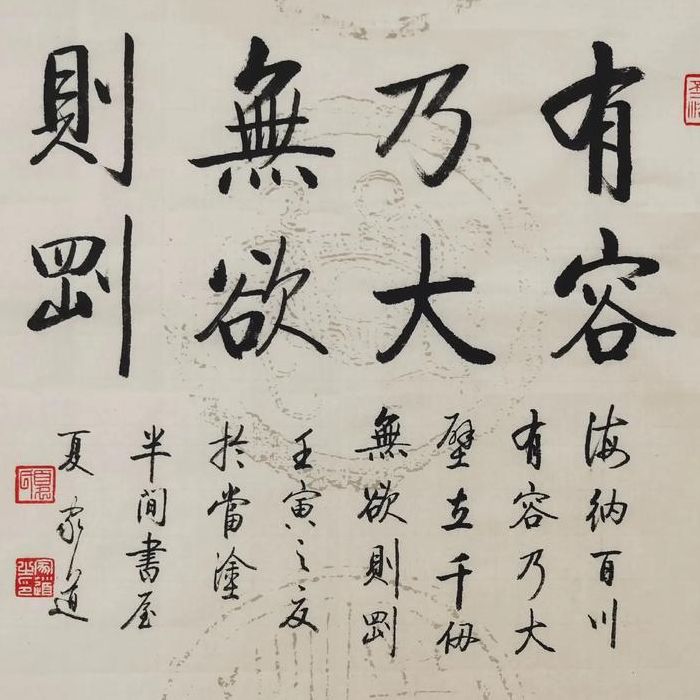 有容
乃大
無欲
則剛
海納百川
有容乃大
壁立千仞
無欲則剛
壬寅之夏
於當塗
半間書屋
夏家道